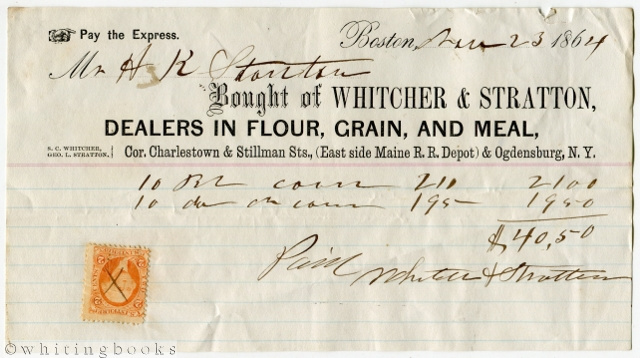 Pay the Express.
Boston, 23 1864
Mr H K
Bought of WHITCHER & STRATTON,
DEALERS IN FLOUR, GRAIN, AND MEAL,
S. C. WHITCHER,
GEO. L. STRATTON,
Cor. Charlestown & Stillman Sts., (East side Maine R. R. Depot) & Ogdensburg, N. Y.
10 corn 210 2100
10 do corn 195 1950
$40,50
Paid
Whitcher & Stratton
2 2
X
©whitingbooks